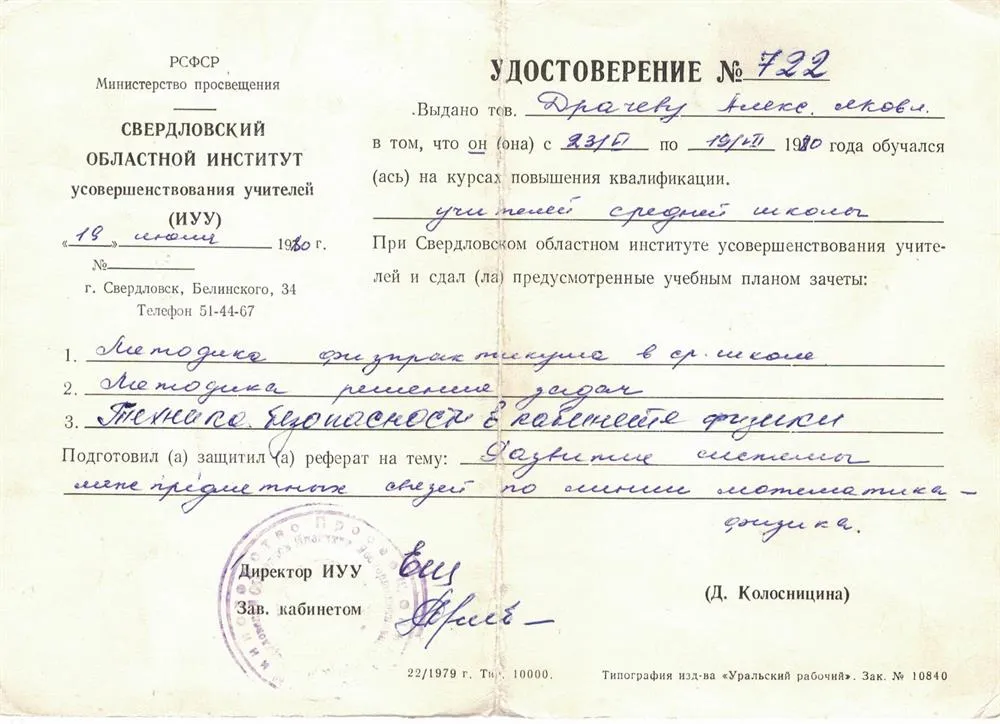 РСФСР
Министерство просвещения
СВЕРДЛОВСКИЙ
ОБЛАСТНОЙ ИНСТИТУТ
усовершенствования учителей
(ИУУ)
«19» июля 1980 г.
№
г. Свердловск, Белинского, 34
Телефон 51-44-67
УДОСТОВЕРЕНИЕ № 722
Выдано тов. Драчеву Алекс. Яковл.
в том, что он (она) с 23/VI по 19/VII 1980 года обучался
(ась) на курсах повышения квалификации.
учителей средней школы
При Свердловском областном институте усовершенствования учите-
лей и сдал (ла) предусмотренные учебным планом зачеты:
1. Методика физпрактикума в ср. школе
2. Методика решение задач
3. Техника безопасности в кабинете физики
Подготовил (а) защитил (а) реферат на тему: Развитие системы
межпредметных связей по линии математика –
физика.
Директор ИУУ
Зав. кабинетом
(Д. Колосницина)
22/1979 г. Тир. 10000.
Типография изд-ва «Уральский рабочий». Зак. № 10840